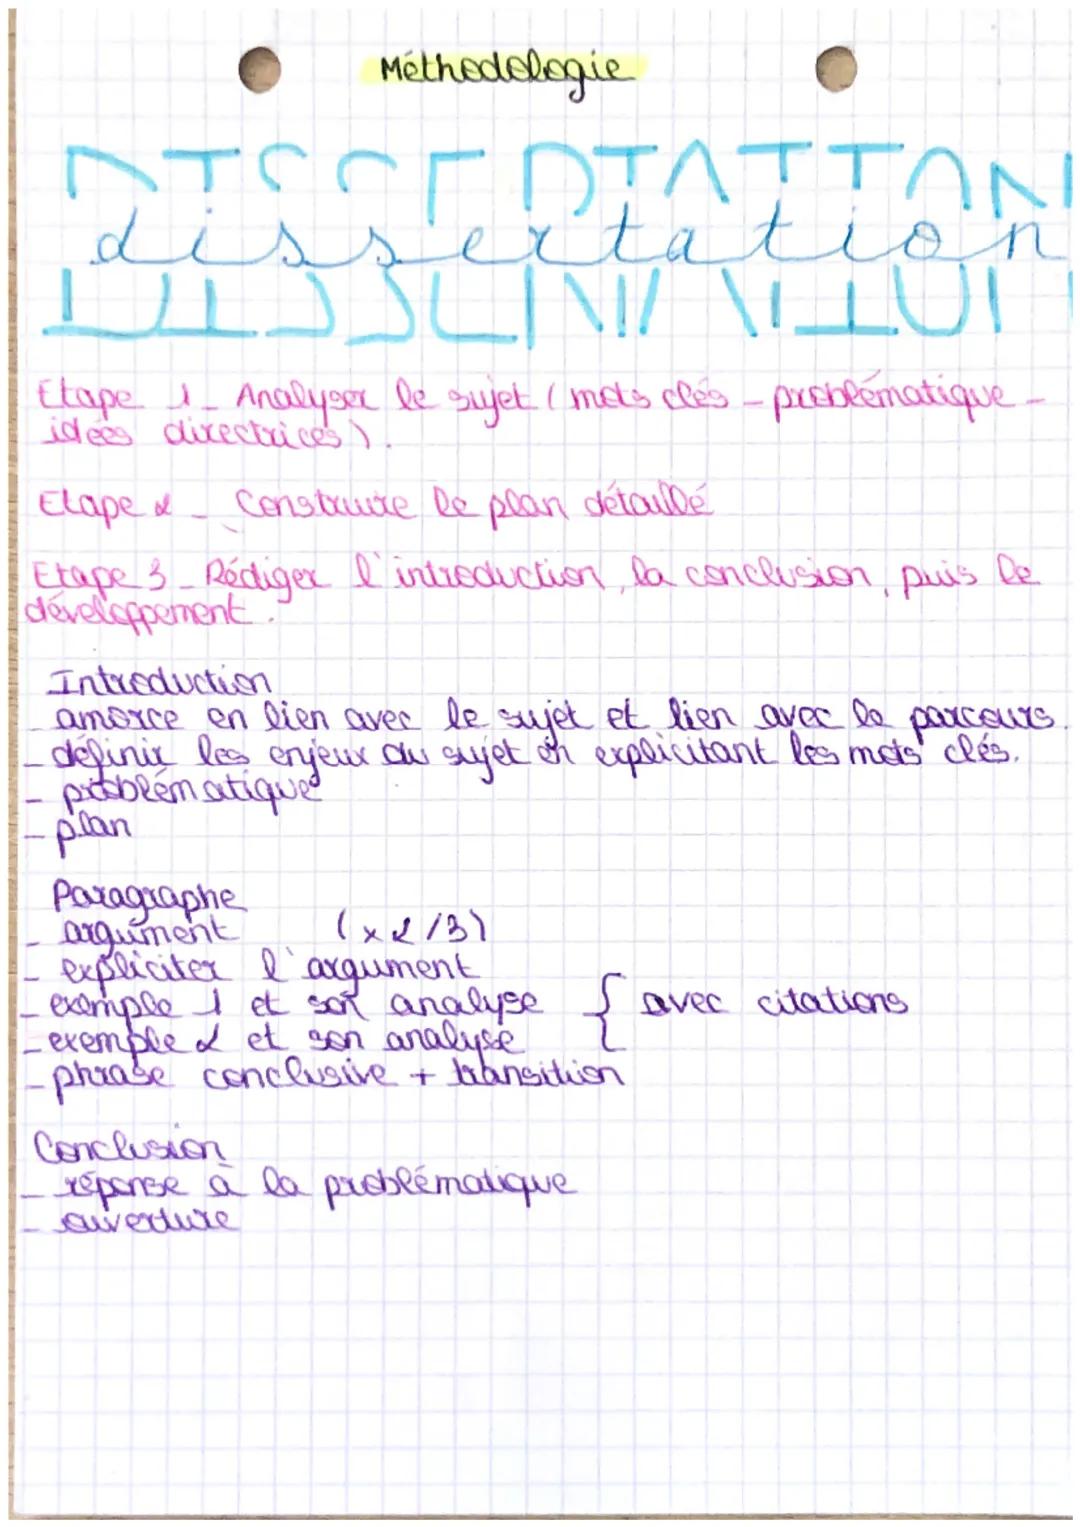 Méthodologie
DISSERTATION
dissertation
Etape 1_ Analyser le sujet (mots clés - problématique -
idées directrices).
Etape 2 _ Construire le plan détaillé
Etape 3 _ Rédiger l'introduction, la conclusion, puis le
développement.
Introduction
_ amorce en lien avec le sujet et lien avec le parcours.
_ définir les enjeux du sujet en explicitant les mots clés.
_ problématique
_ plan
Paragraphe
_ argument (x2/3)
_ expliciter l'argument
_ exemple 1 et son analyse { avec citations
_ exemple 2 et son analyse
_ phrase conclusive + transition
Conclusion
_ réponse à la problématique
_ ouverture